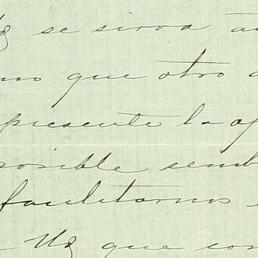 se sirva
mo que otro
presente la
posible semb
facilitarnos
Ud que con